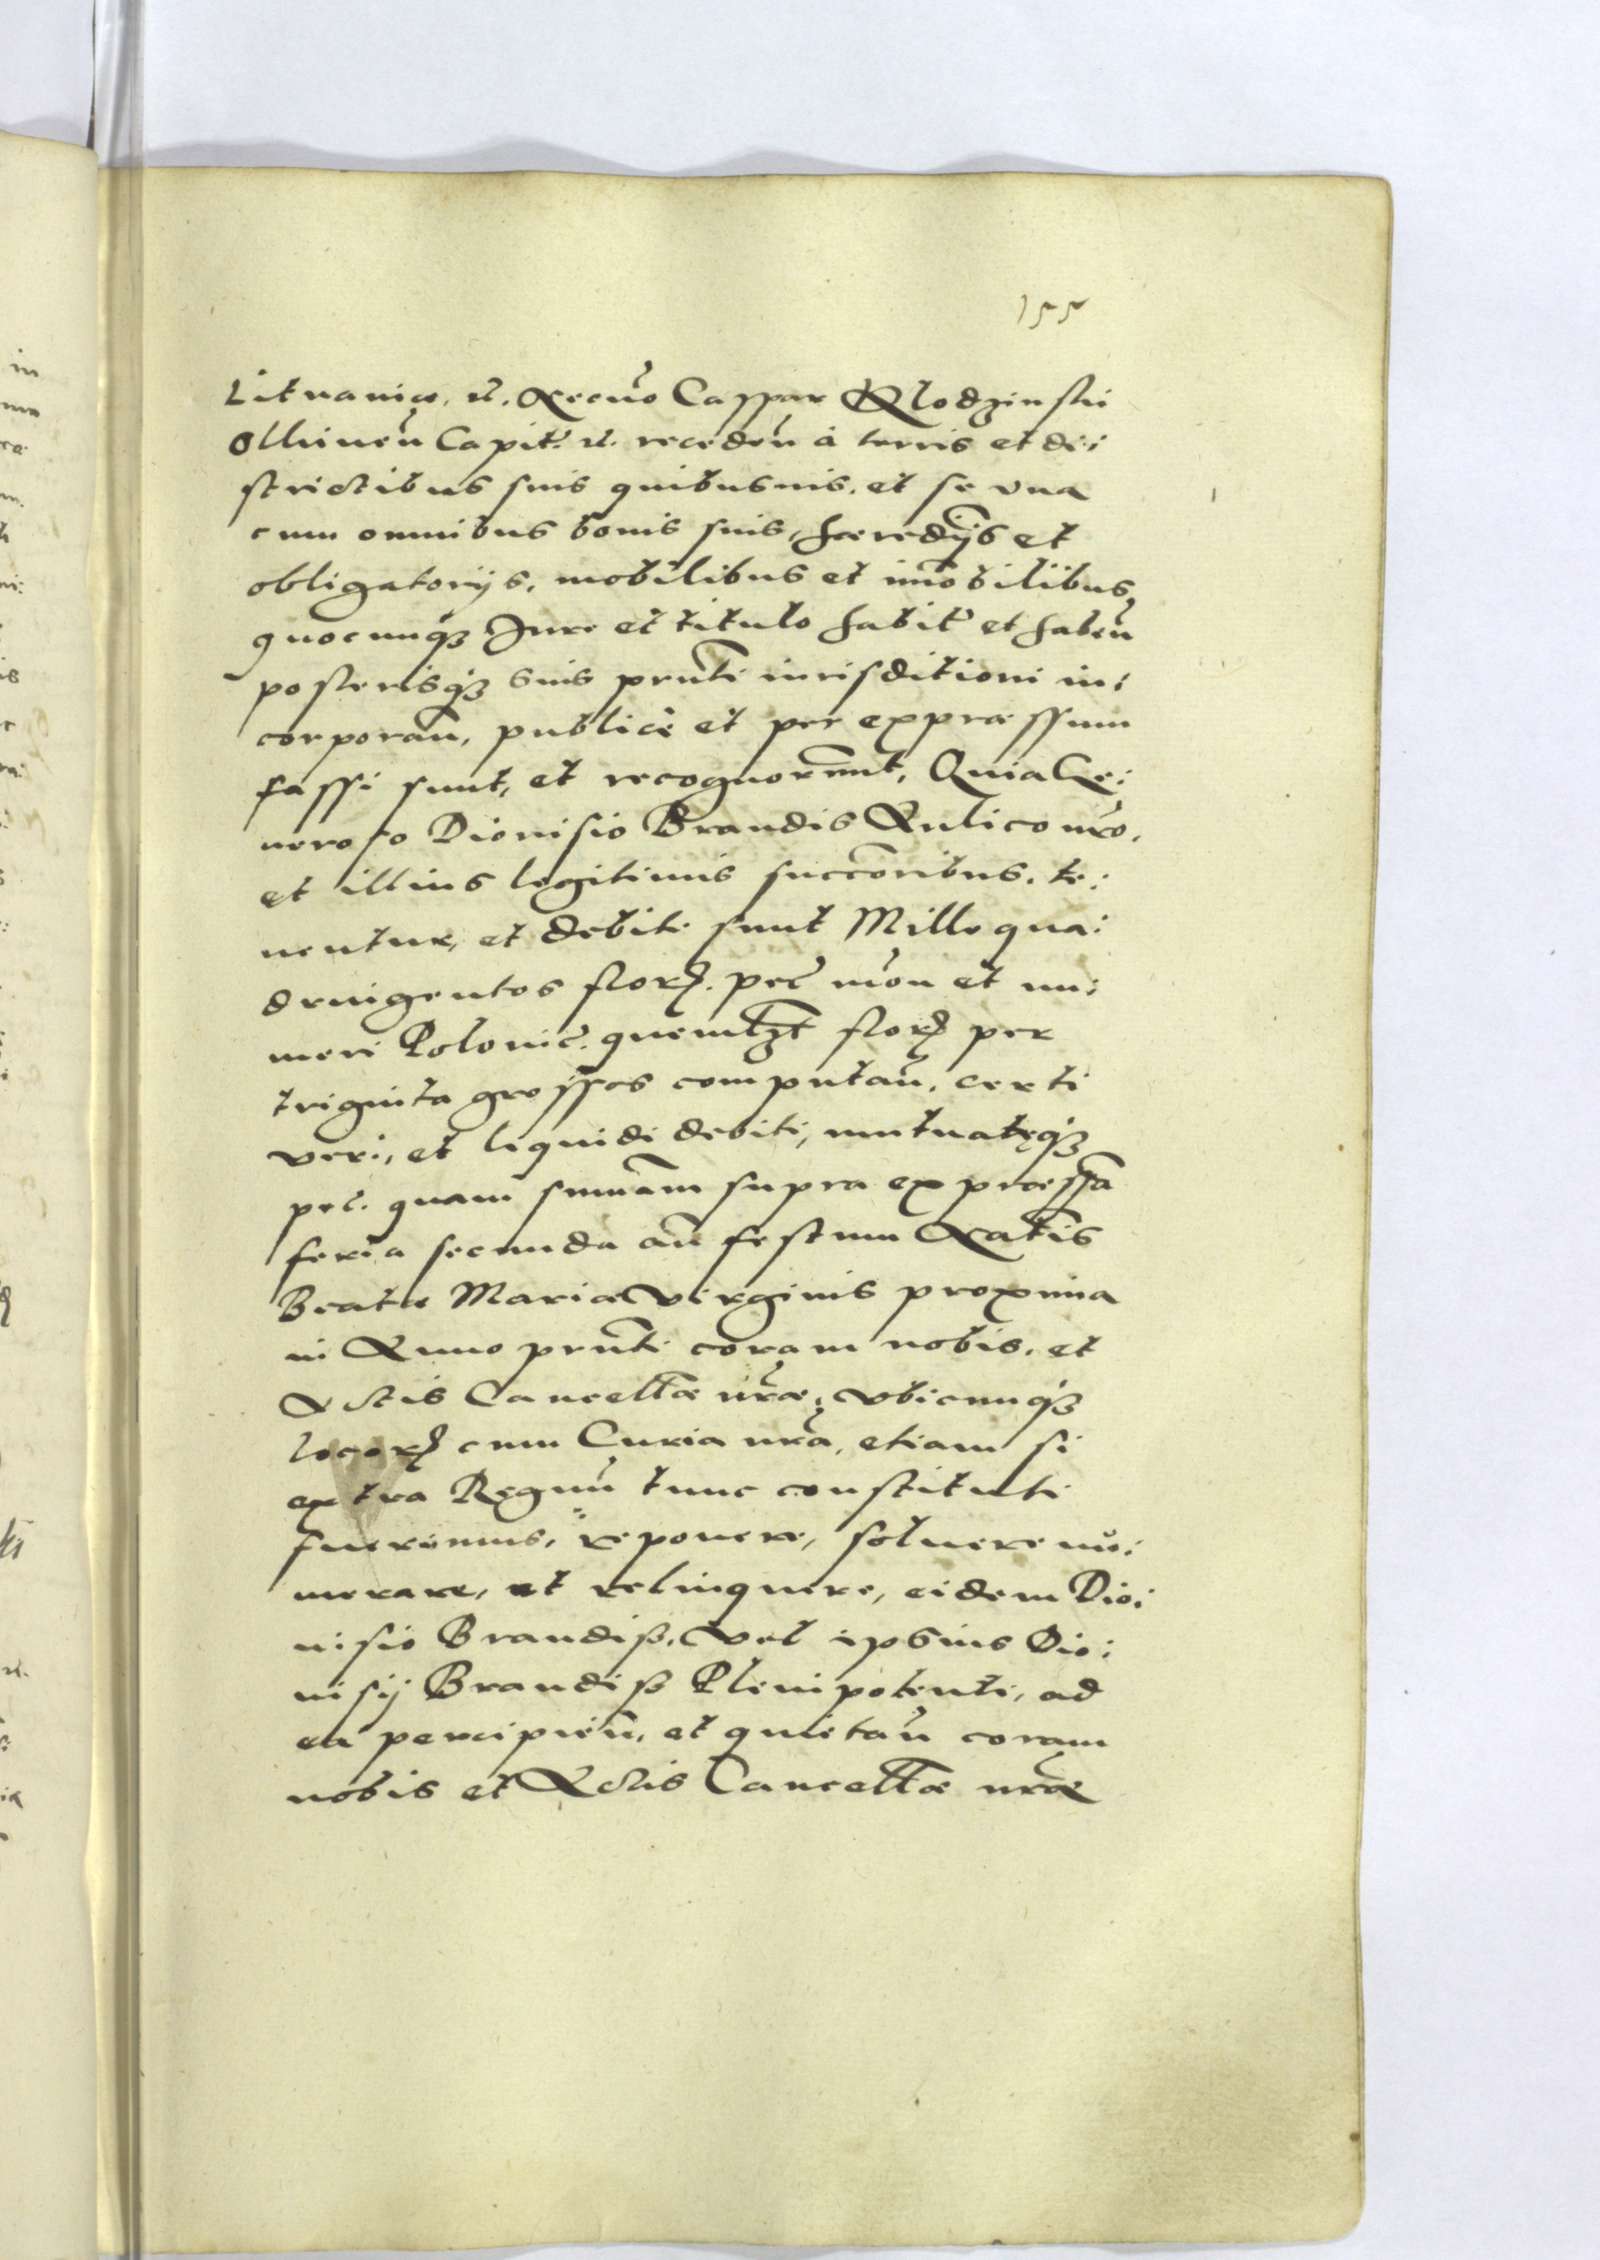 155
Lituaniæ, et. Necnõ Caspar Klodzinski
Olkinen̄ Capit. et. receden̄ à terris et di:
strictibus suis quibusuis, et se vna
cum omnibus bonis suis, hæredijs et
obligatorijs, mobilibus et imobilibus,
quocunq3 Jure et titulo habit et haben̄
posterisq3 suis pn̄ti iurisditioni in:
corporan̄, publicè et per expræssum
fassi sunt, et recognorunt, Quia Ge:
neroso Dionisio Brandis Aulico nr̄o,
et illius legitimis succ̄oribus, te:
nentur, et debiti sunt Mille qua:
dringentos flor. pec̄ mon̄ et nu:
meri Polonic̄. quemlzt flor per
triginta grossos computan̄, certi
veri, et liquidi debiti, mutuatęq3
pec̄. quam summam supra expræssā
feria secunda an̄ festum Natīs
Beatæ Mariæ Virginis proxima
in Anno pn̄ti coram nobis, et
Actis Cancell̄æ nr̄æ, vbicunq3
locor cum Curia nr̄a, etiam si
extra Regnū tunc constituti
fuerimus, reponere, soluere nu:
merare, et relinquere, eidem Dio:
nisio Brandiß, Vel ipsius Dio:
nisij Brandiß Plenipotenti, ad
ea percipien̄, et quietan̄ coram
nobis et Actis Cancell̄æ nr̄æ